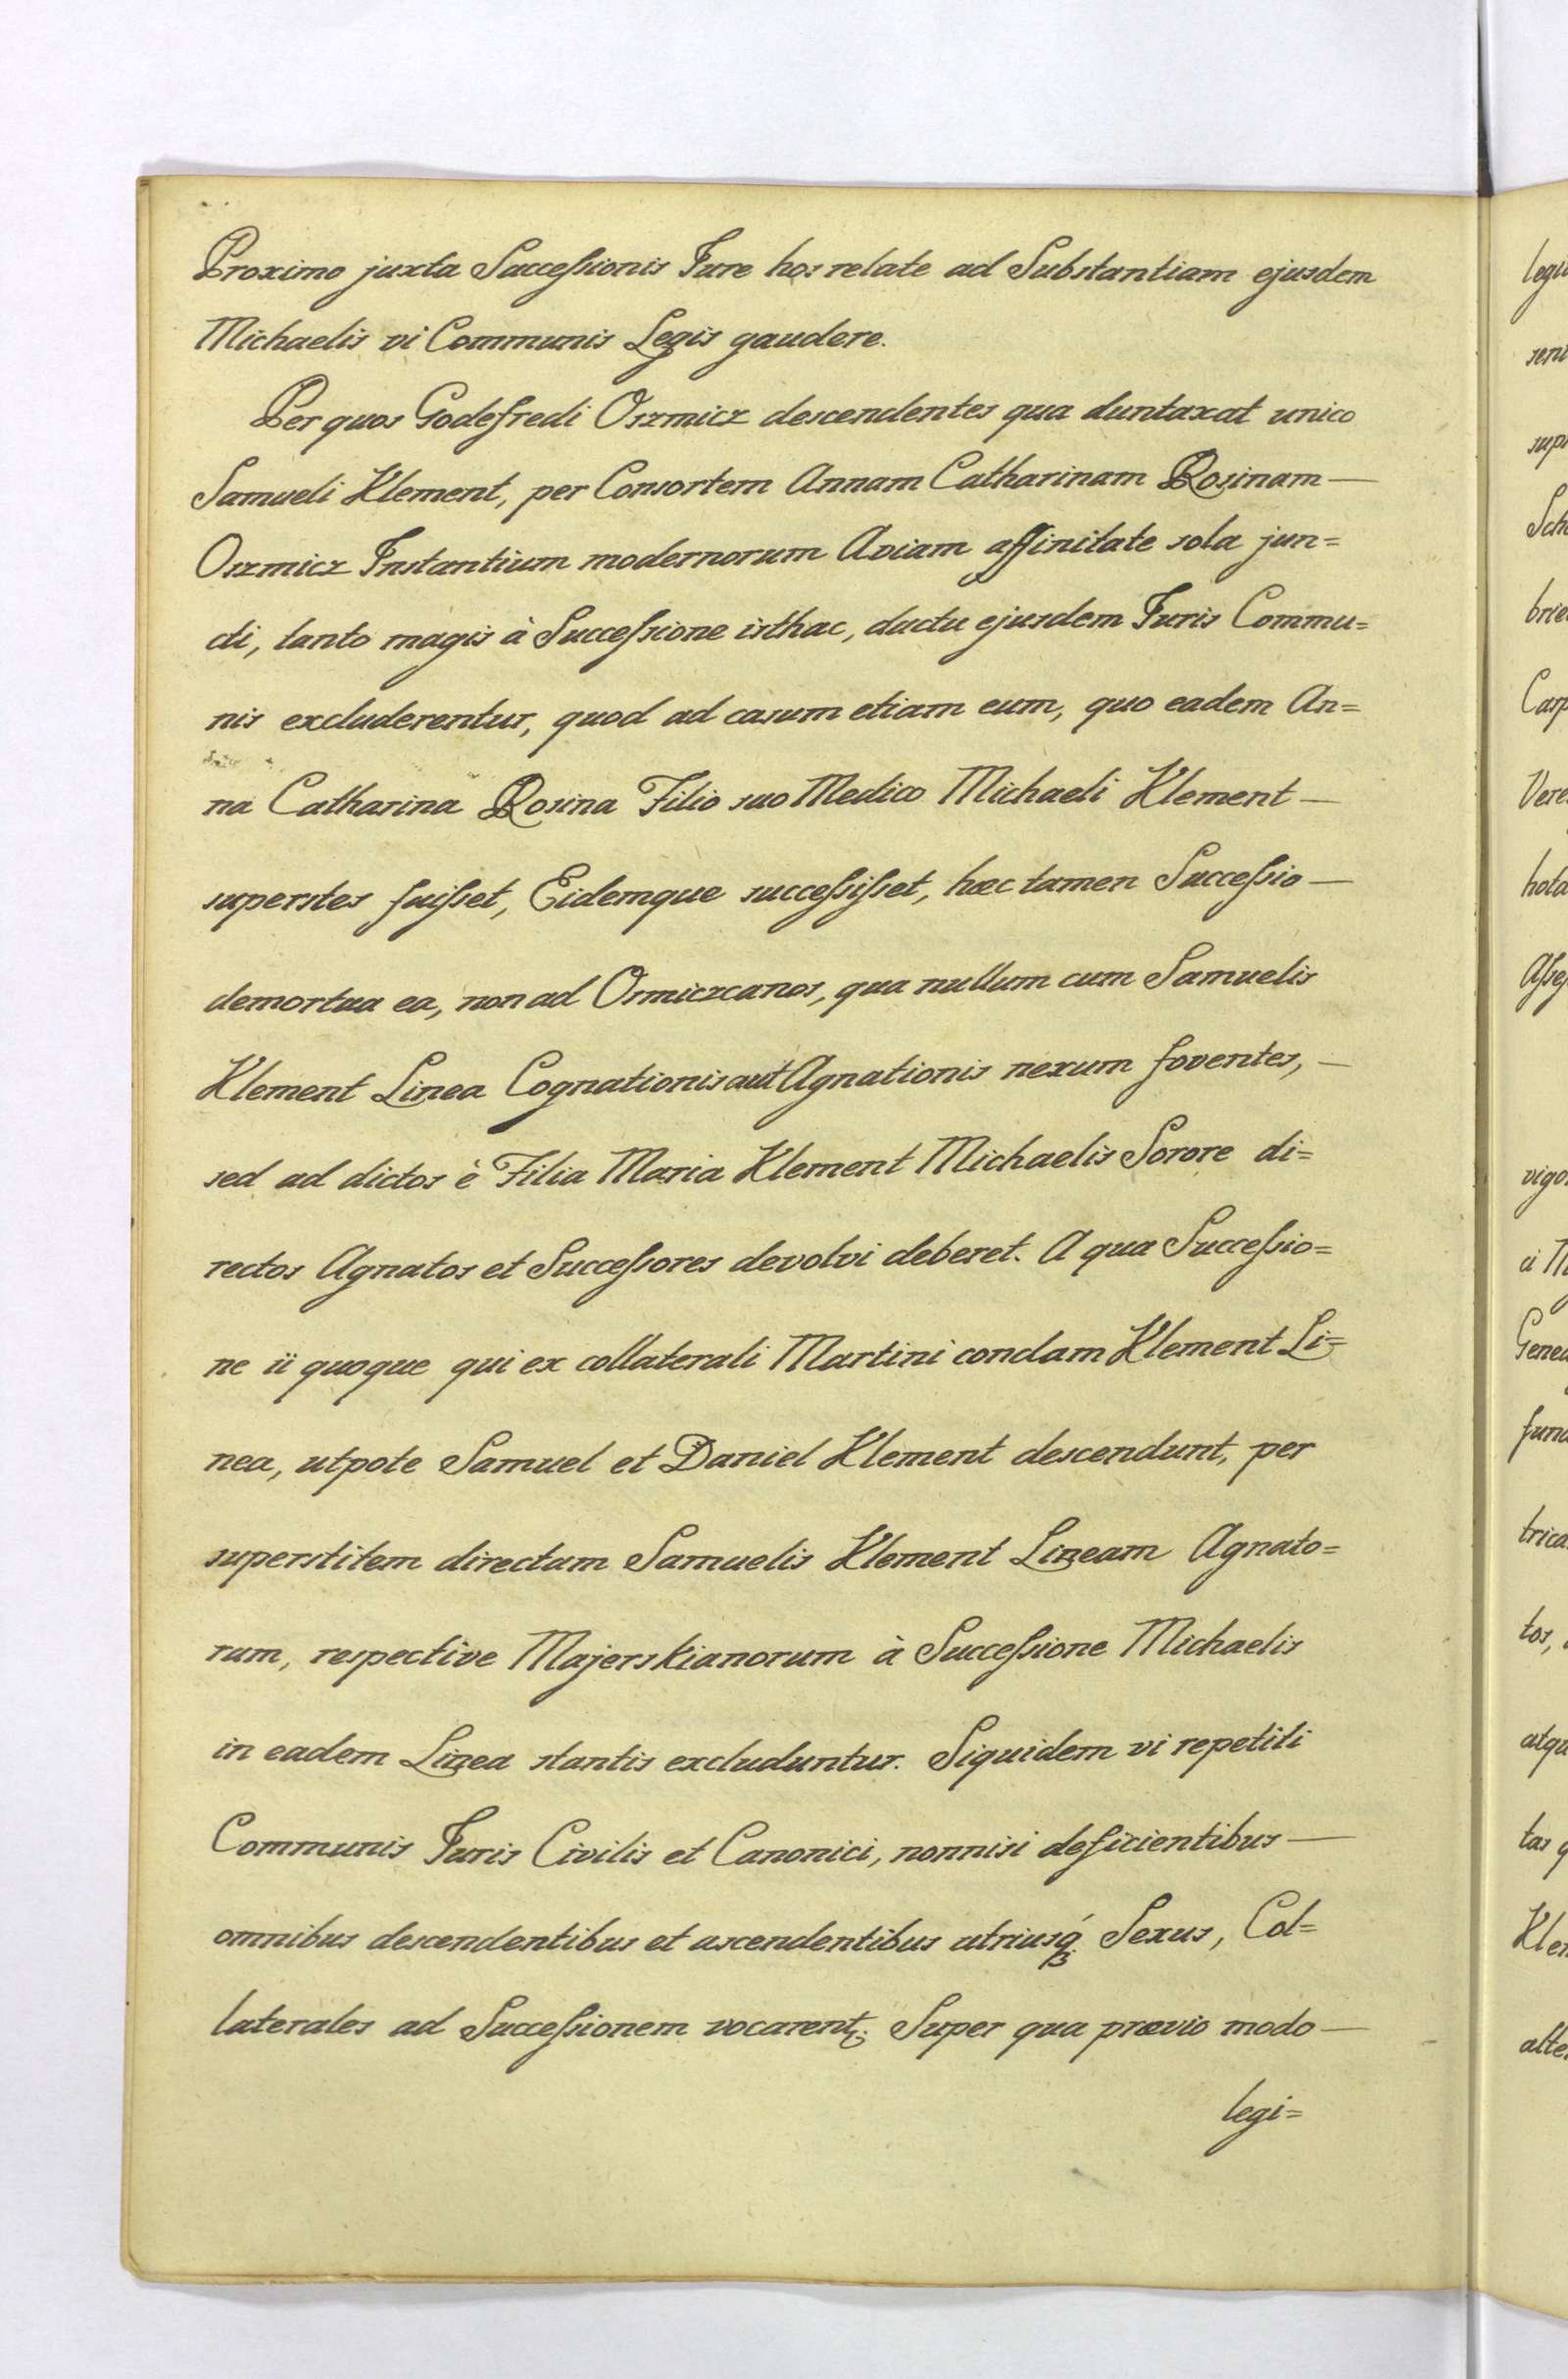 Proximo juxta Succeſsionis Jure hos relate ad Substantiam ejusdem
Michaelis vi Communis Legis gaudere.
Per quos Godefredi Oszmicz descendentes qua duntaxat unico
Samueli Klement, per Consortem Annam Catharinam Rosinam —
Oszmicz Instantium modernorum Aviam affinitate sola jun=
cti, tanto magis à Succeſsione isthac, ductu ejusdem Juris Commu=
nis excluderentur, quod ad casum etiam eum, quo eadem An=
na Catharina Rosina Filio suo Medico Michaeli Klement —
superstes fuiſset, Eidemque succeſsiſset, hæc tamen Succeſsio —
demortua ea, non ad Osmiczcanos, qua nullum cum Samuelis
Klement Linea Cognationis aut Agnationis nexum foventes, —
sed ad dictos è Filia Maria Klement Michaelis Sorore di=
rectos Agnatos et Succeſsores devolvi deberet. A qua Succeſsio=
ne ii quoque qui ex collaterali Martini condam Klement Li=
nea, utpote Samuel et Daniel Klement descendunt, per
superstitem directam Samuelis Klement Lineam Agnato=
rum, respective Majerskianorum à Succeſsione Michaelis
in eadem Linea stantis excluduntur. Siquidem vi repetiti
Communis Juris Civilis et Canonici, nonnisi deficientibus —
omnibus descendentibus et ascendentibus utriusq́ Sexus, Col=
laterales ad Succeſsionem vocarent. Super qua prævio modo —
legi=